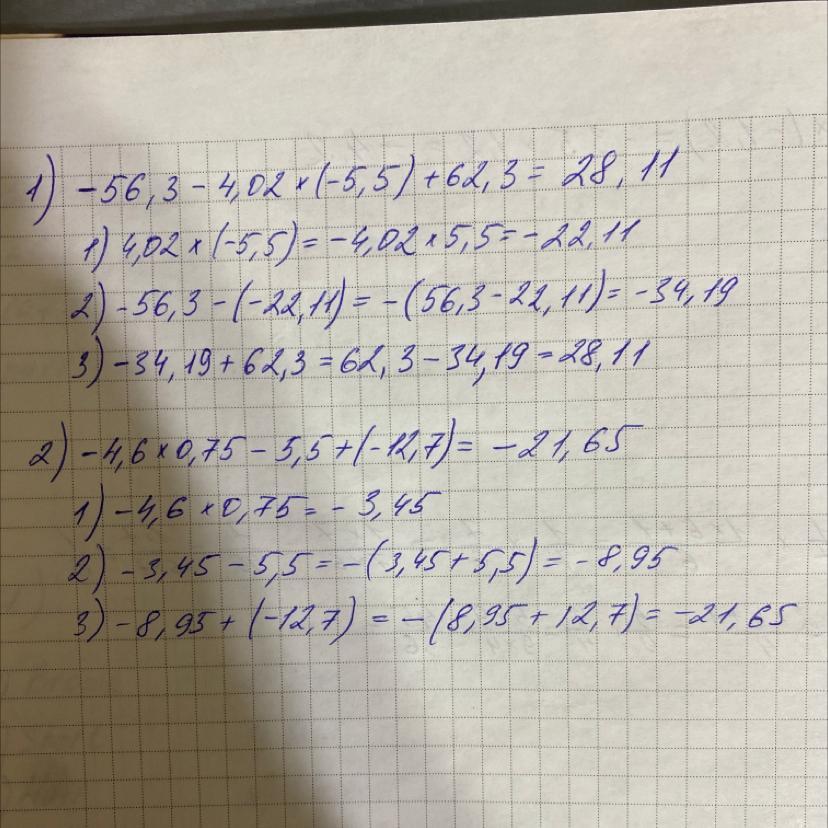 1) -56,3 - 4,02 × (-5,5) + 62,3 = 28,11
1) 4,02 × (-5,5) = -4,02 × 5,5 = -22,11
2) -56,3 - (-22,11) = -(56,3 - 22,11) = -34,19
3) -34,19 + 62,3 = 62,3 - 34,19 = 28,11
2) -4,6 × 0,75 - 5,5 + (-12,7) = -21,65
1) -4,6 × 0,75 = -3,45
2) -3,45 - 5,5 = -(3,45 + 5,5) = -8,95
3) -8,95 + (-12,7) = -(8,95 + 12,7) = -21,65